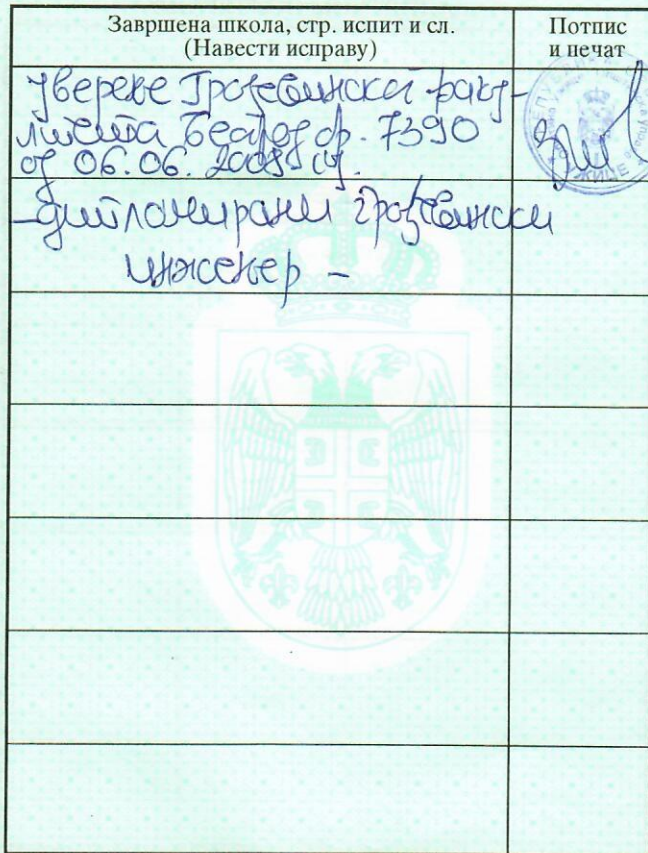 Завршена школа, стр. испит и сл.
(Навести исправу)
Потпис
и печат
Уверење Грађевинског факу-
лтета Београд бр. 7390
од 06.06. 2008 год.
- дипломирани грађевински
инжењер -
УЖИЦЕ